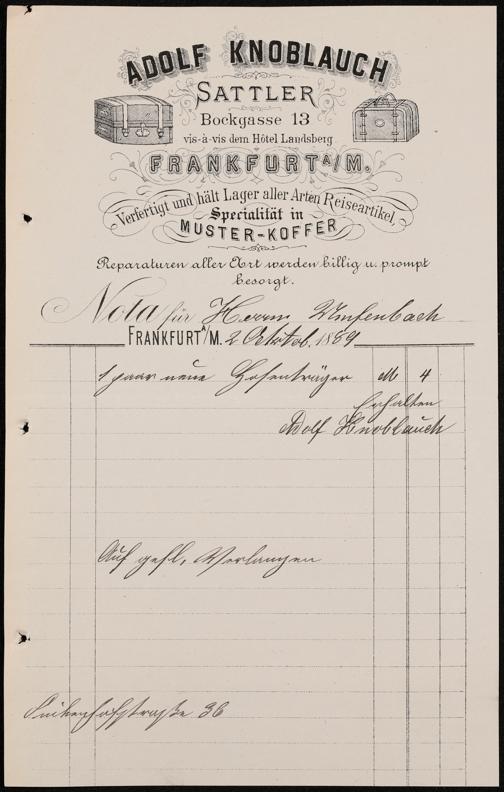 ADOLF KNOBLAUCH
SATTLER
Bockgasse 13
vis-à-vis dem Hôtel Landsberg
FRANKFURT A/M.
Verfertigt und hält Lager aller Arten Reiseartikel,
Specialität in
MUSTER-KOFFER
Reparaturen aller Art werden billig u. prompt
besorgt.
Nota für Herrn Umfenbach
FRANKFURT A/M. 2 Octob. 1889
1 paar neue Hosenträger M 4
Erhalten
Adolf Knoblauch
Auf gefl. Verlangen
36